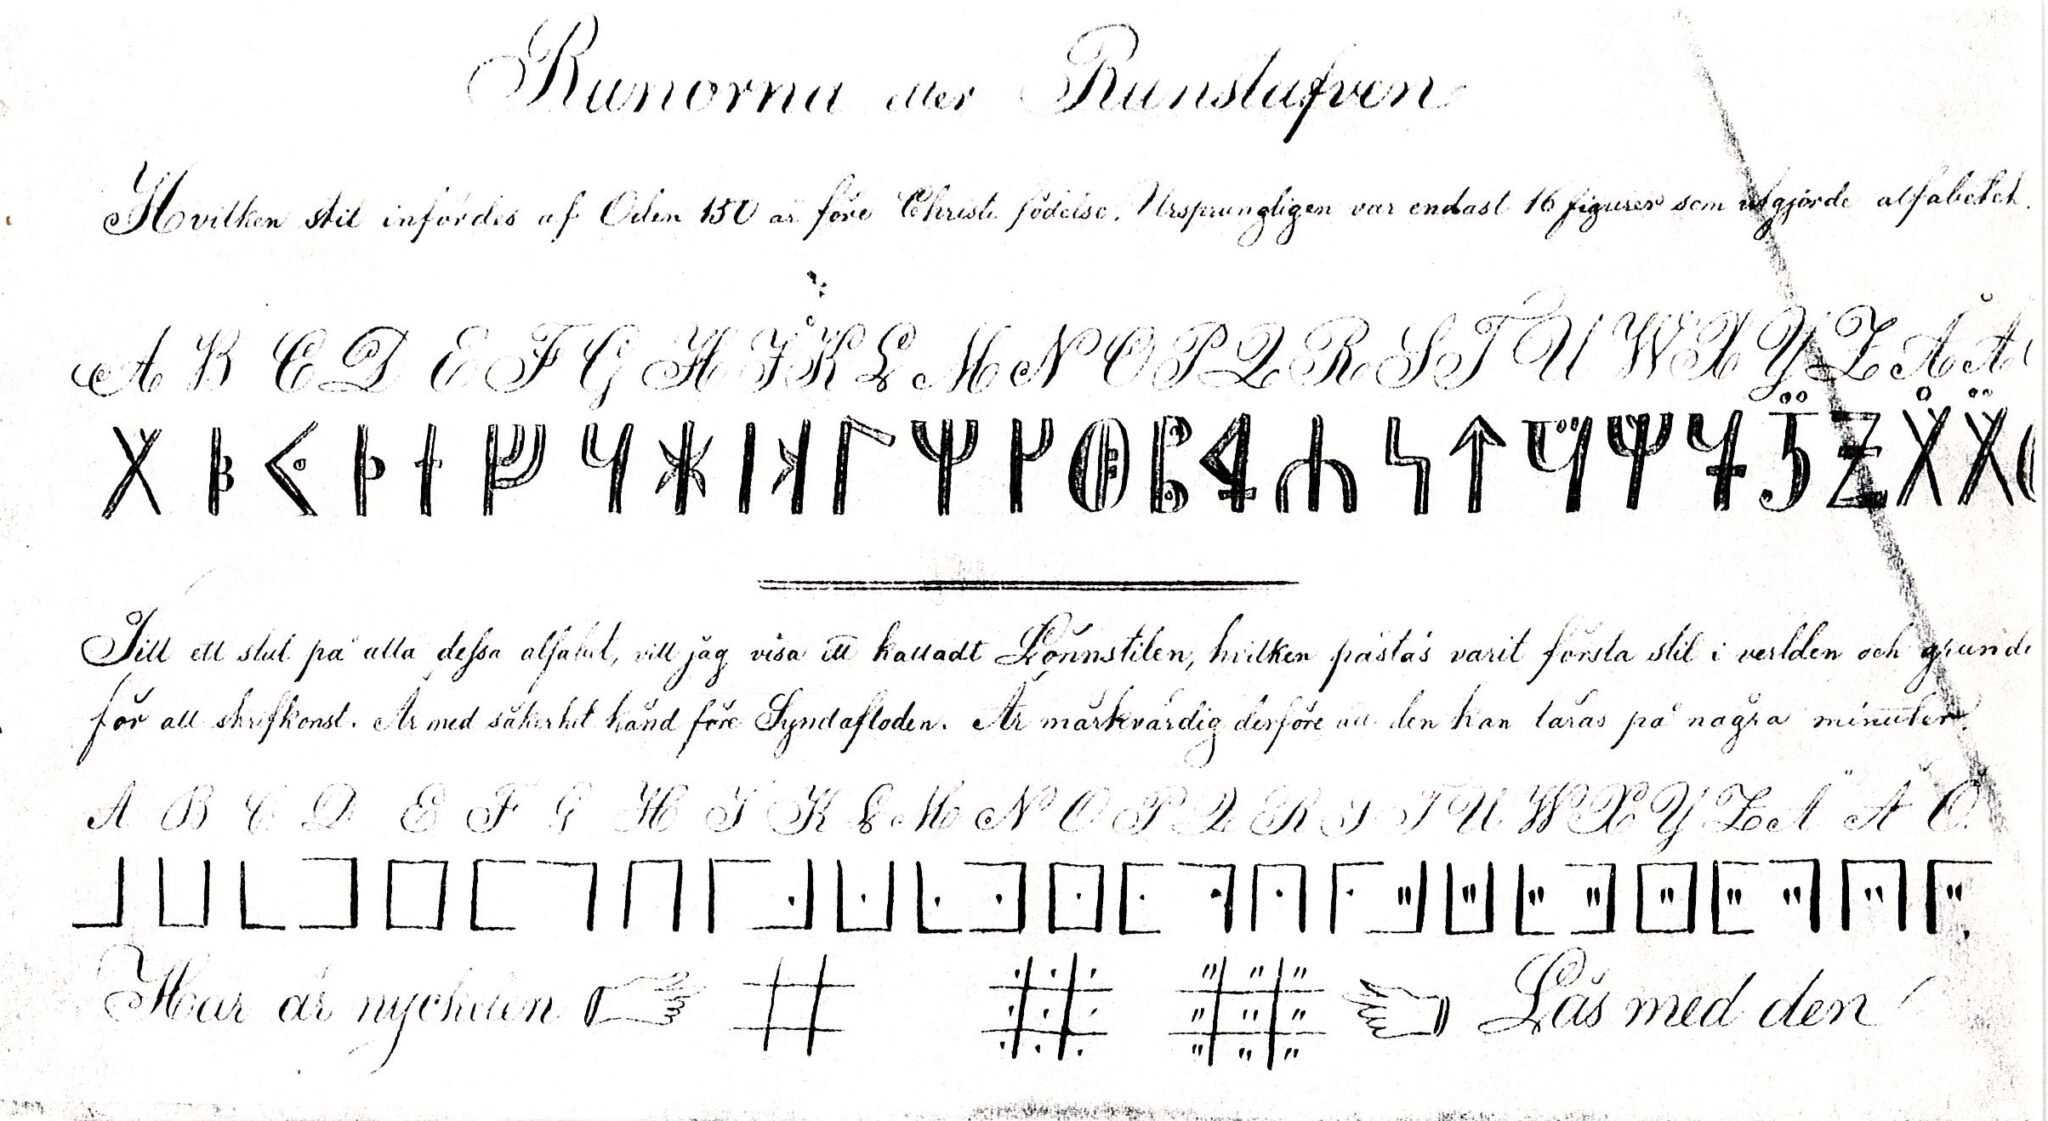 Runorna eller Runstafven
Hvilken stil infördes af Oden 150 år före Christi födelse. Ursprungligen var endast 16 figurer som utgjorde alfabetet.
A B C D E F G H I K L M N O P Q R S T U W X Y Z Å Ä
Till ett slut på alla dessa alfabet, vill jag visa ett kalladt Lönnstilen, hvilken påstås varit första stil i verlden och grund
för all skrifkonst. Är med säkerhet känd före Syndafloden. Är märkvärdig derföre att den kan läras på några minuter.
A B C D E F G H I K L M N O P Q R S T U W X Y Z Å Ä Ö
Här är nyckelen Läs med den